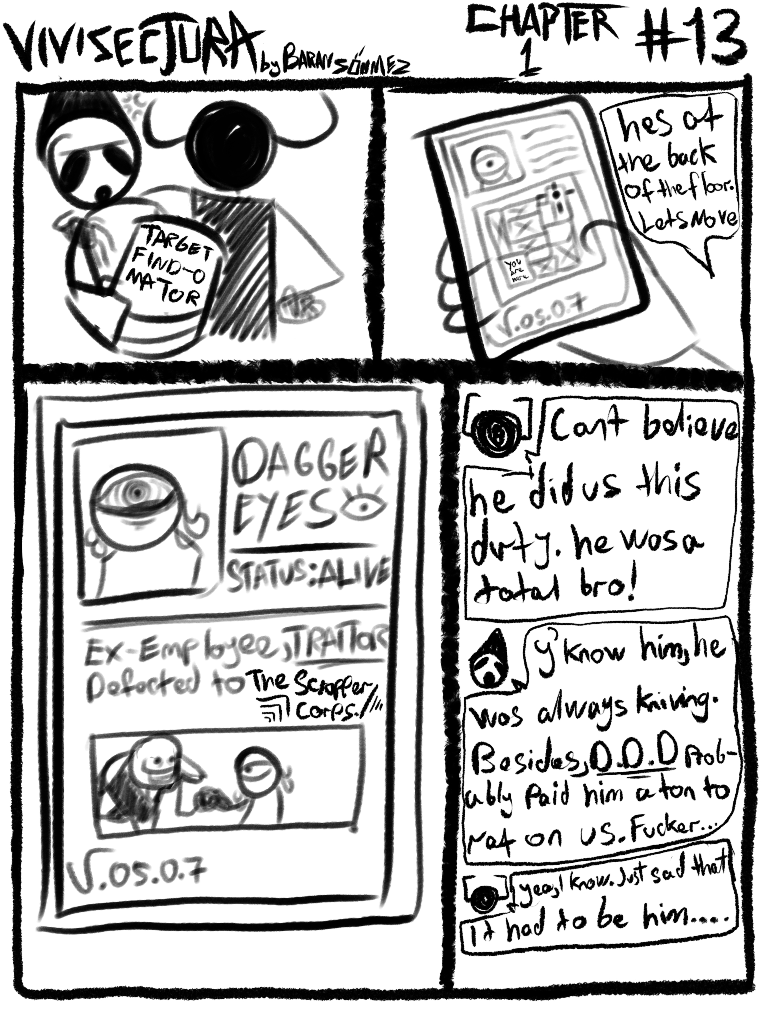 VIVISECTURA by BARAN SÖNMEZ
CHAPTER
1
#13
TARGET
FIND-O
MATOR
hes at
the back
of the floor.
Lets Move
YOU
ARE
HERE
V.05.0.7
DAGGER
EYES
STATUS:ALIVE
Ex-Employee, TRAITOR
Defected to The Scrapper
Corps.
V.05.0.7
Cant believe
he did us this
dirty. he was a
total bro!
y'know him, he
was always kniving.
Besides, D.D.D Prob-
ably Paid him a ton to
rat on us. Fucker...
yeah, I know. Just said that
It had to be him....